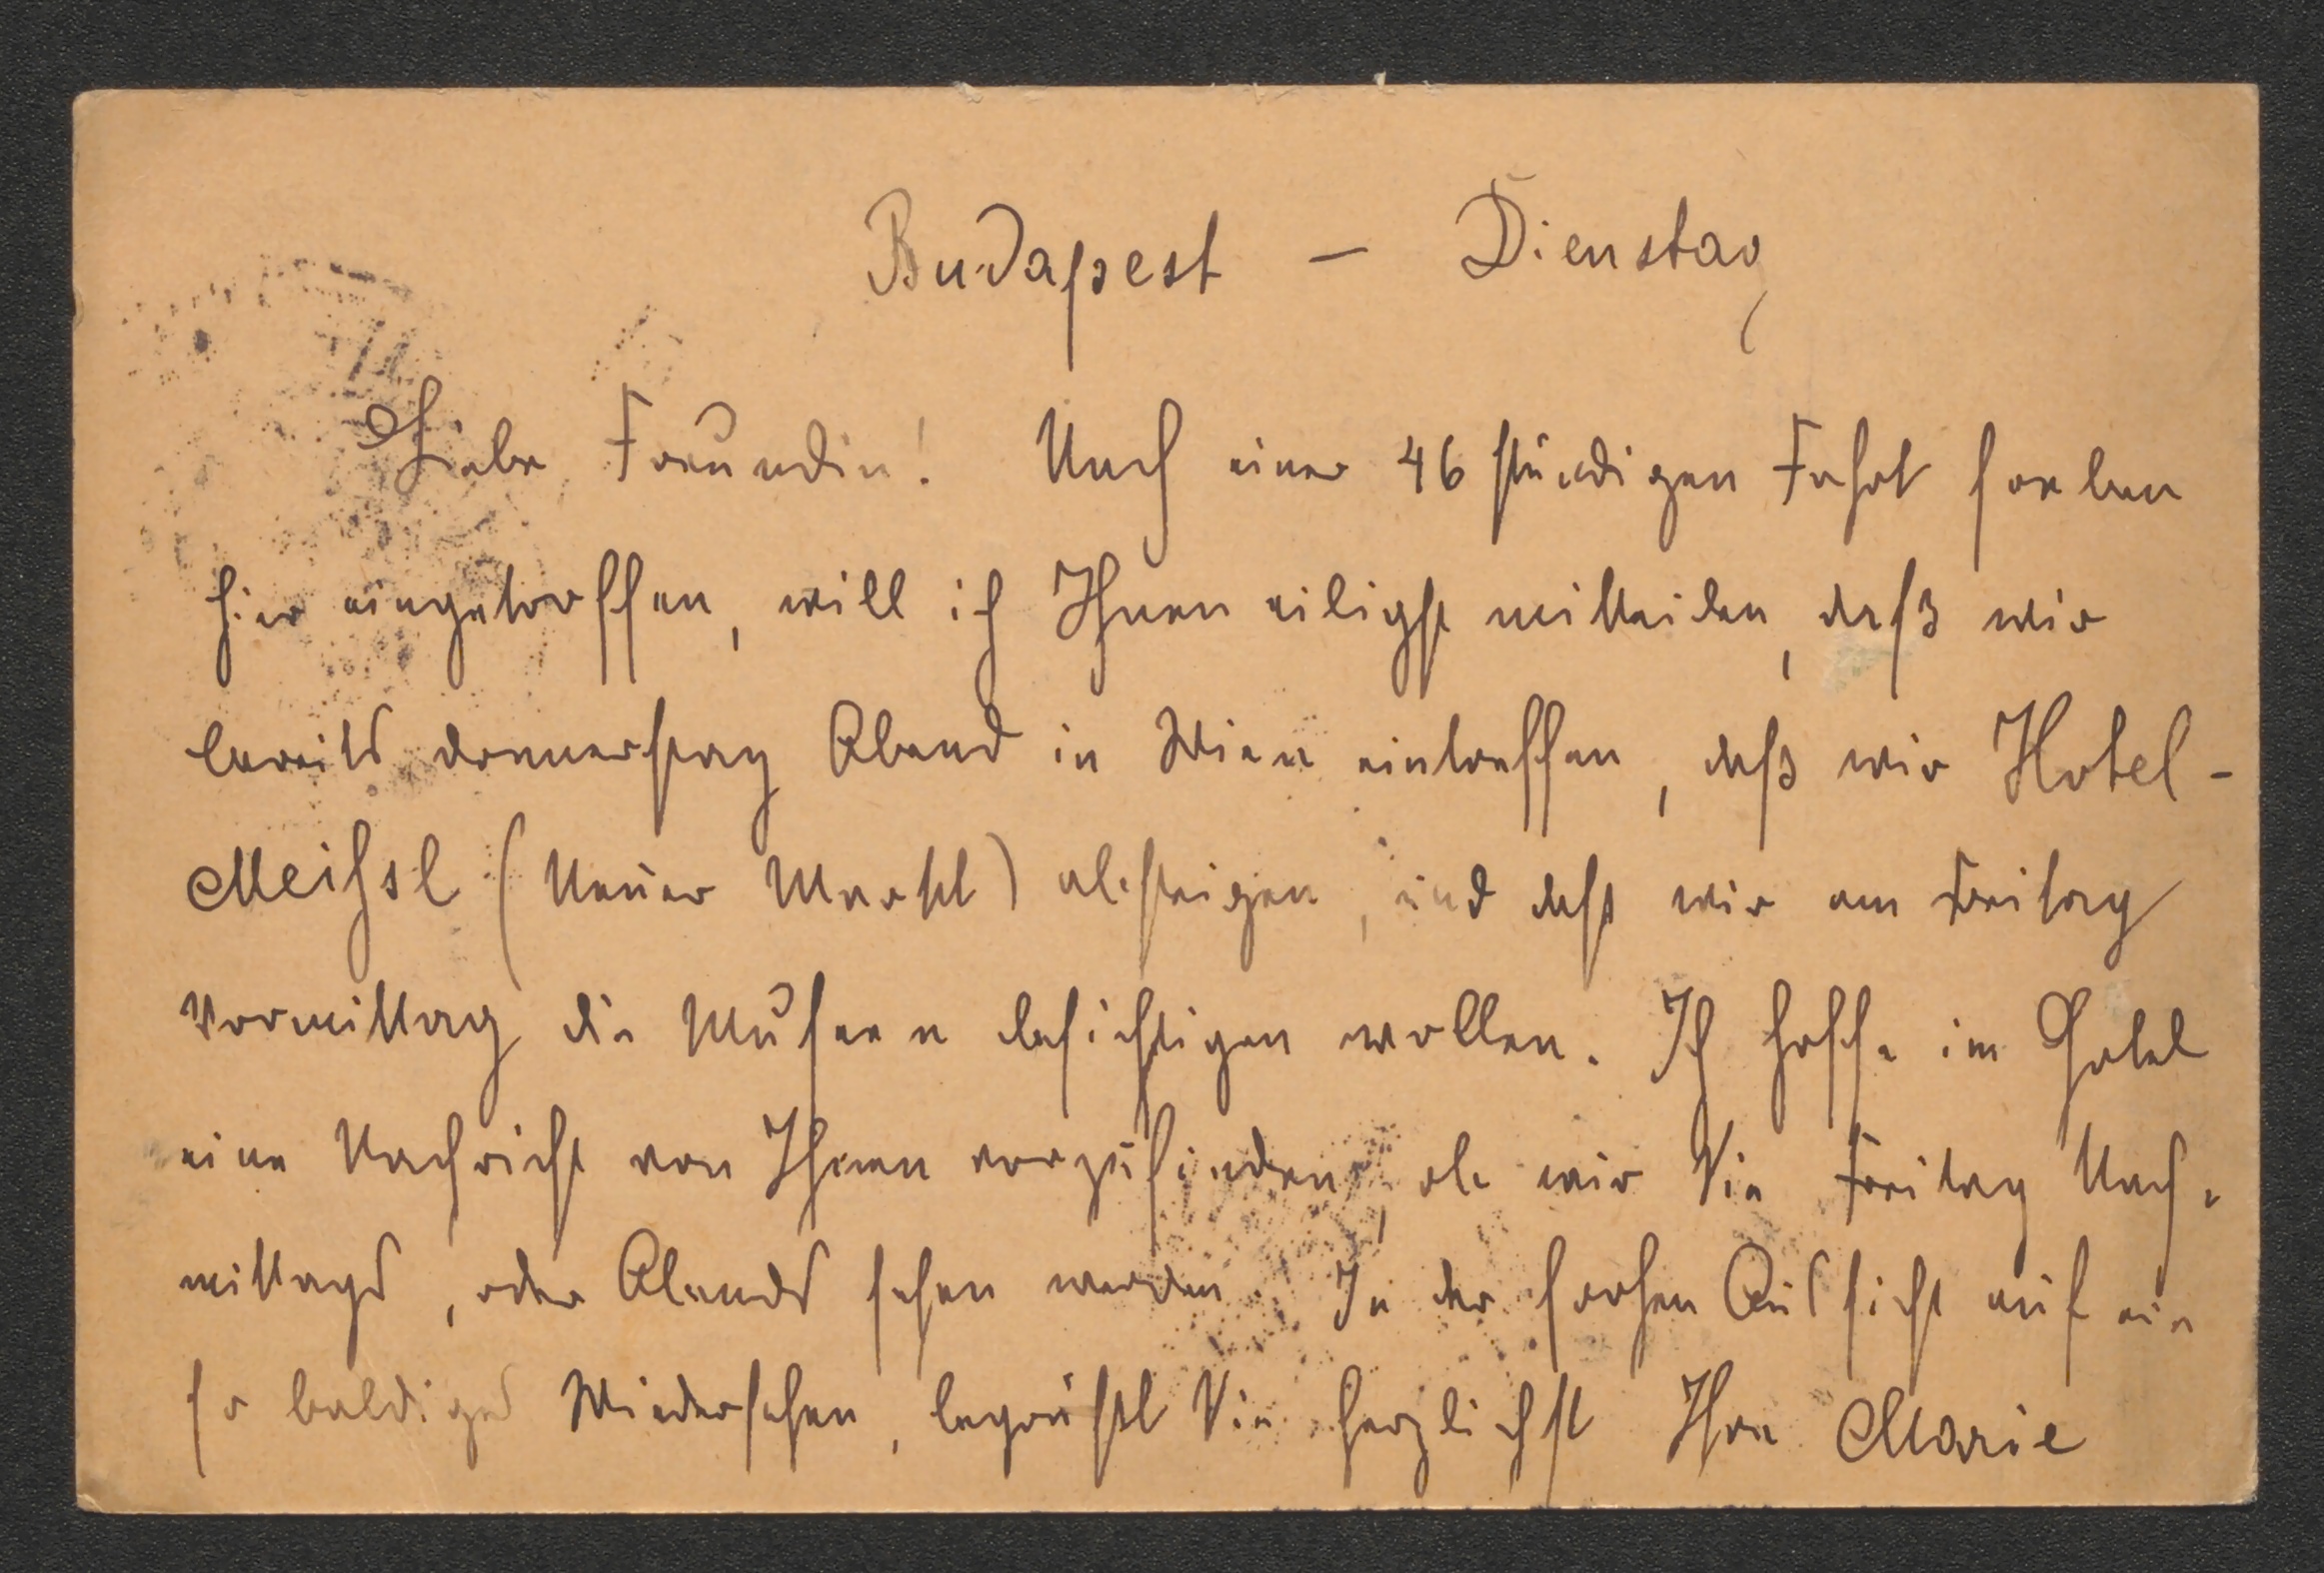 Budapest – Dienstag
Liebe Freundin! Nach einer 46 stündigen Fahrt soeben
hier eingetroffen, will ich Ihnen eiligst mitteilen, daß wir
bereits donnerstag Abend in Wien eintreffen, daß wir Hotel-
Meißsl (Neuer Markt) absteigen, und daß wir am Freitag
Vormittag die Museen besichtigen wollen. Ich hoffe im Hotel
eine Nachricht von Ihnen vorzufinden, ob wir Sie Freitag Nach-
mittags, oder Abends sehen werden. In der frohen Aussicht auf ein
so baldiges Wiedersehen, begrüßt Sie herzlichst Ihre Marie